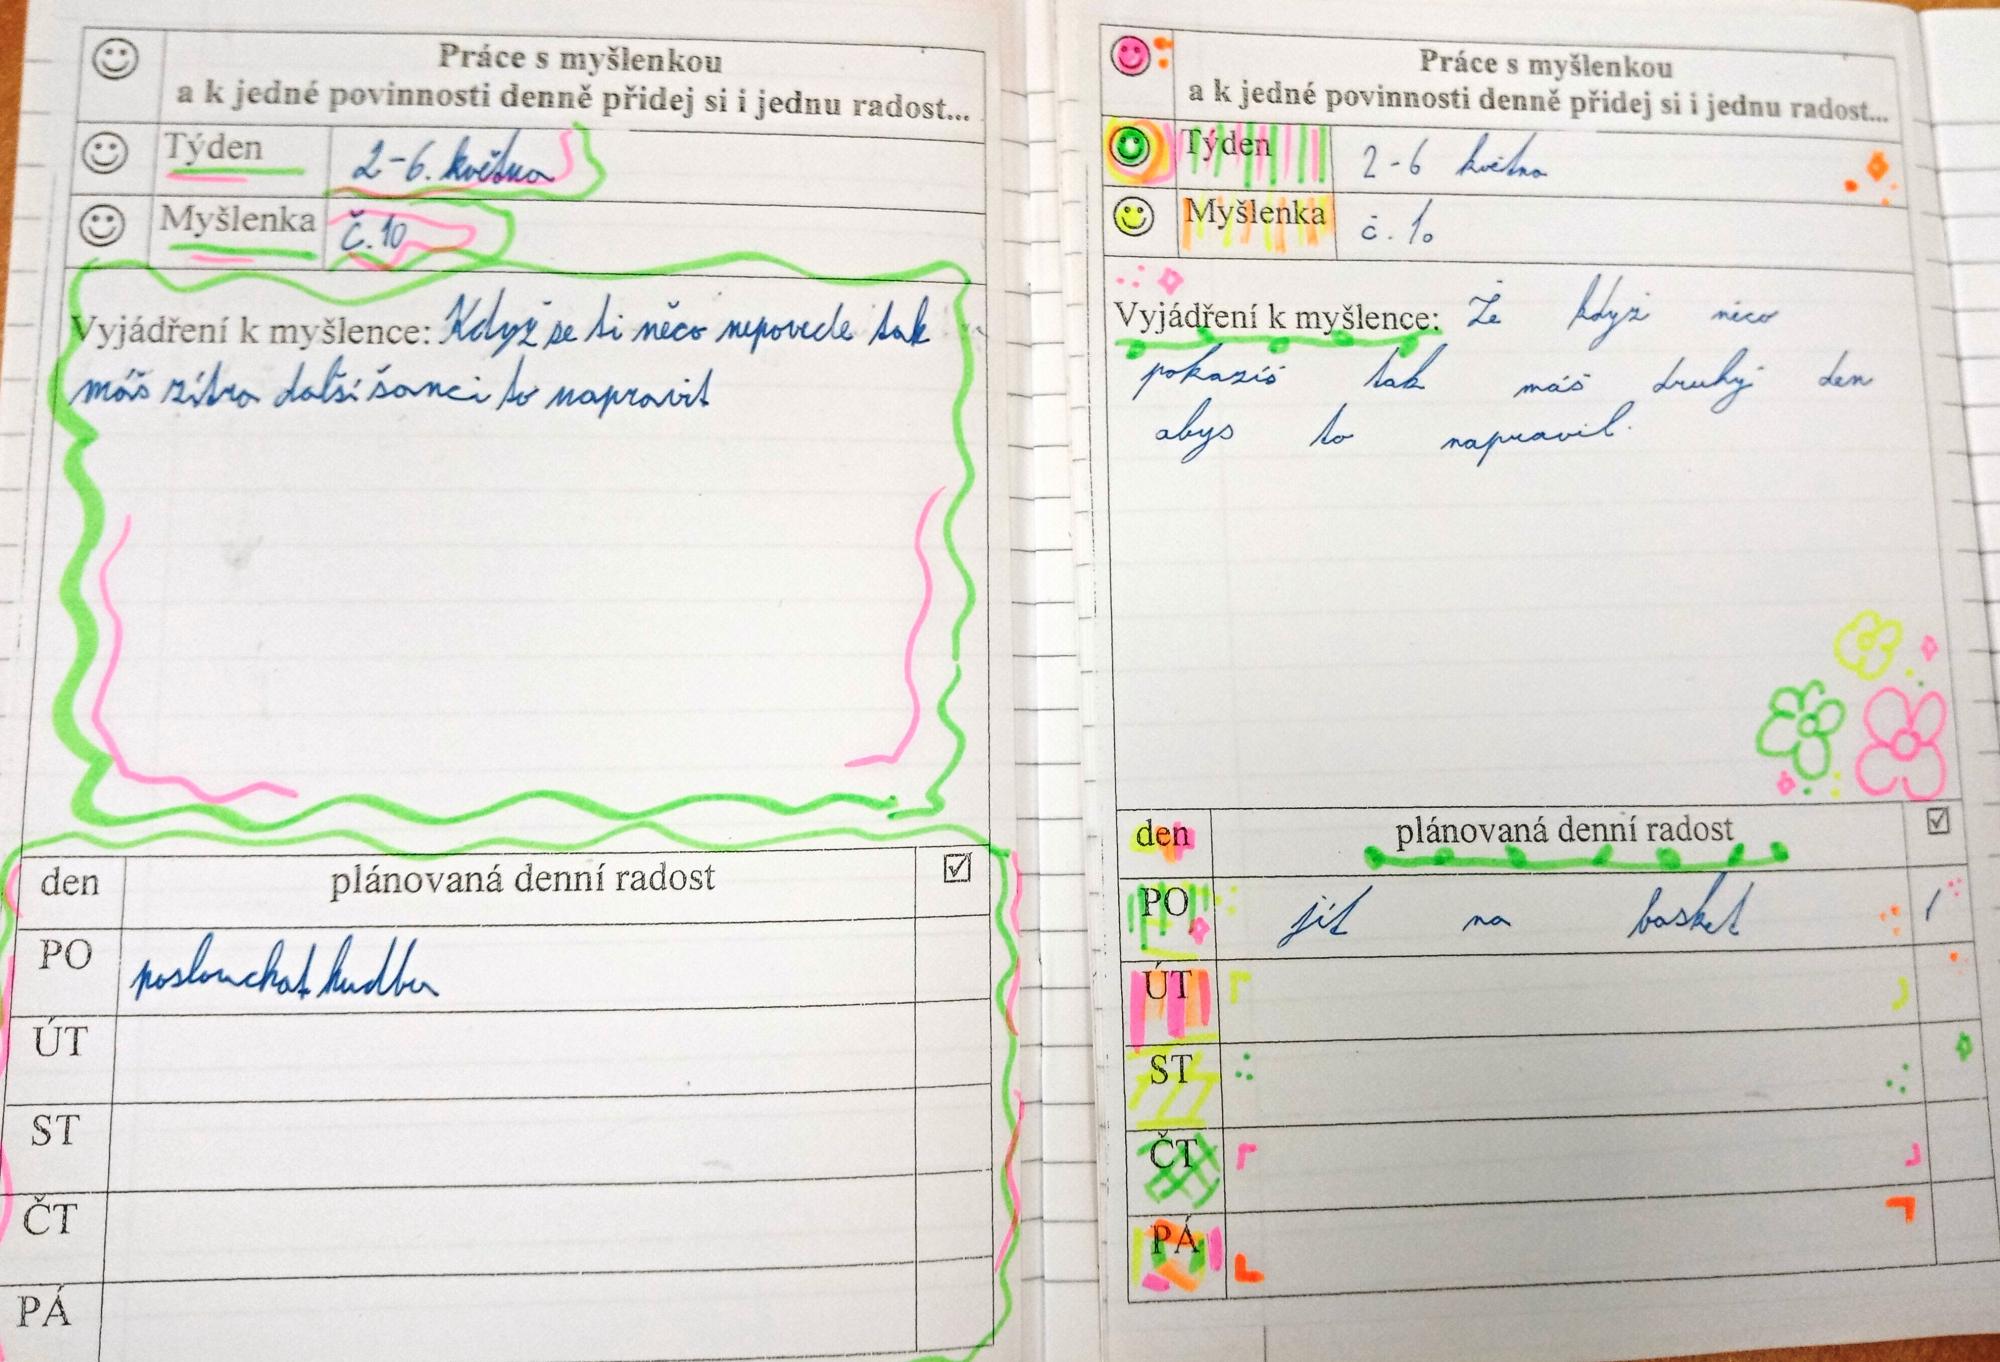 Práce s myšlenkou
a k jedné povinnosti denně přidej si i jednu radost...
Týden 2-6. května
Myšlenka č.10
Vyjádření k myšlence: Když se ti něco nepovede tak
máš zítra další šanci to napravit
den plánovaná denní radost
PO poslouchat hudbu
ÚT
ST
ČT
PÁ
Práce s myšlenkou
a k jedné povinnosti denně přidej si i jednu radost...
Týden 2-6 května
Myšlenka č.10
Vyjádření k myšlence: Že když něco
pokazíš tak máš druhý den
abys to napravil.
den plánovaná denní radost
PO jít na basket
ÚT
ST
ČT
PÁ